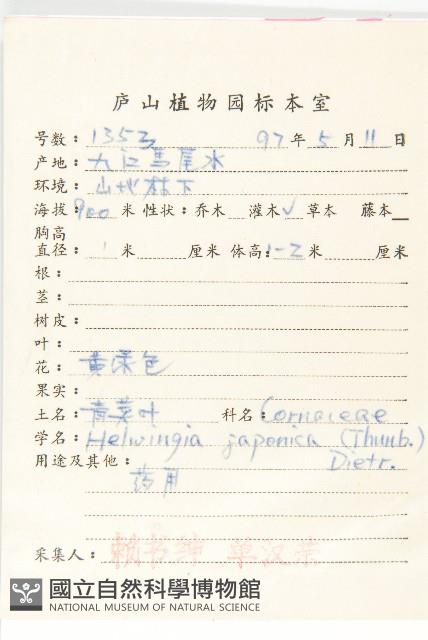 庐山植物园标本室
号数：1353 97年5月11日
产地：九江馬尾水
环境：山地林下
海拔：900米 性状：乔木 灌木✓ 草本 藤本
胸高
直径： 米 厘米 体高：1-2米 厘米
根：
茎：
树皮：
叶：
花：黄绿色
果实：
土名：青荚叶 科名：Cornaceae
学名：Helwingia japonica (Thunb.)
Dietr.
用途及其他：
药用
采集人：赖书绅 单汉荣
國立自然科學博物館
NATIONAL MUSEUM OF NATURAL SCIENCE